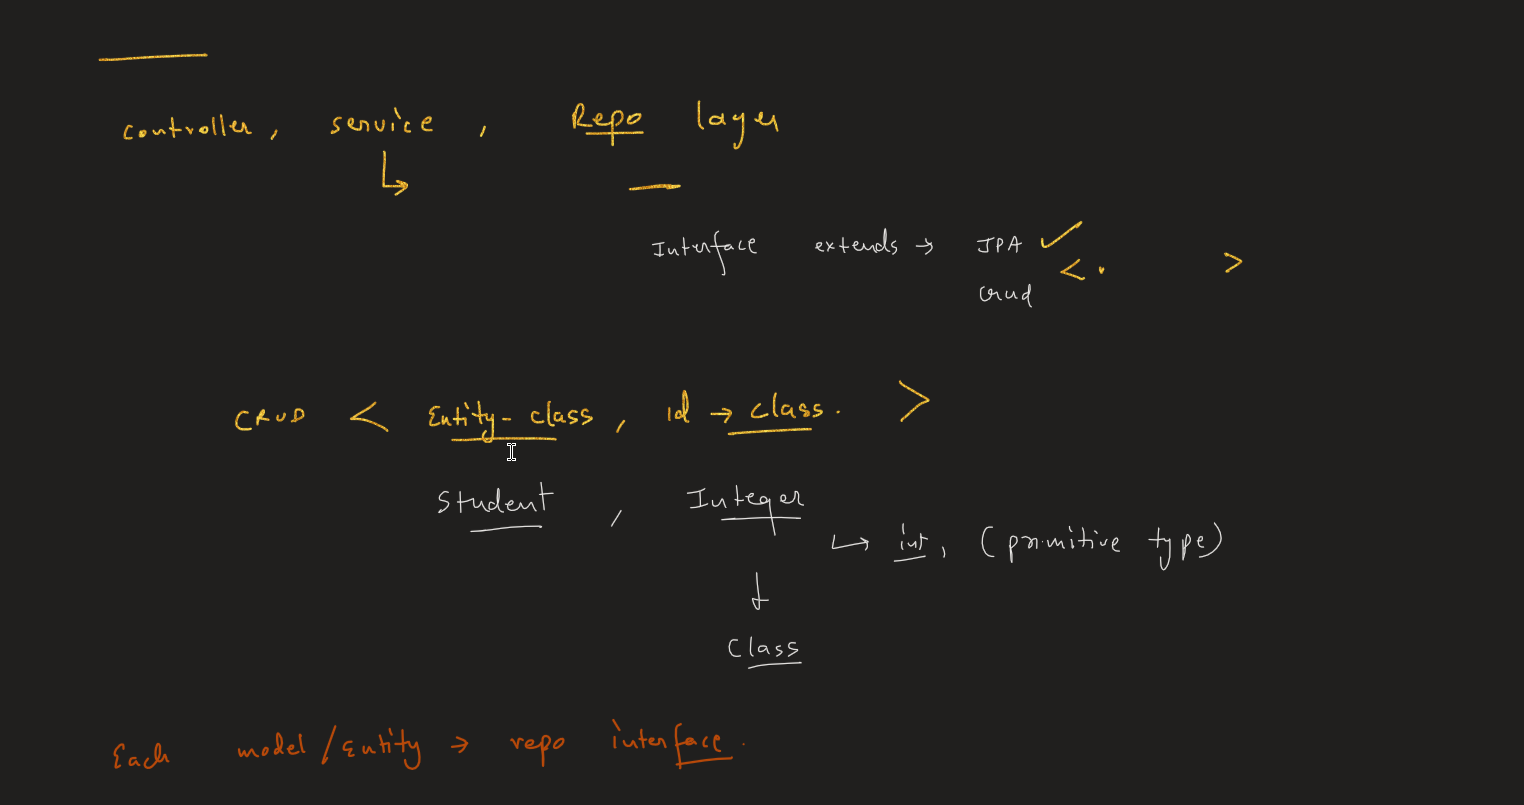 controller, service, Repo layer
Interface extends → JPA ✓
< . >
crud
CRUD < Entity-class, id → class. >
Student, Integer
↳ int, (primitive type)
↓
Class
Each model/Entity → repo interface.